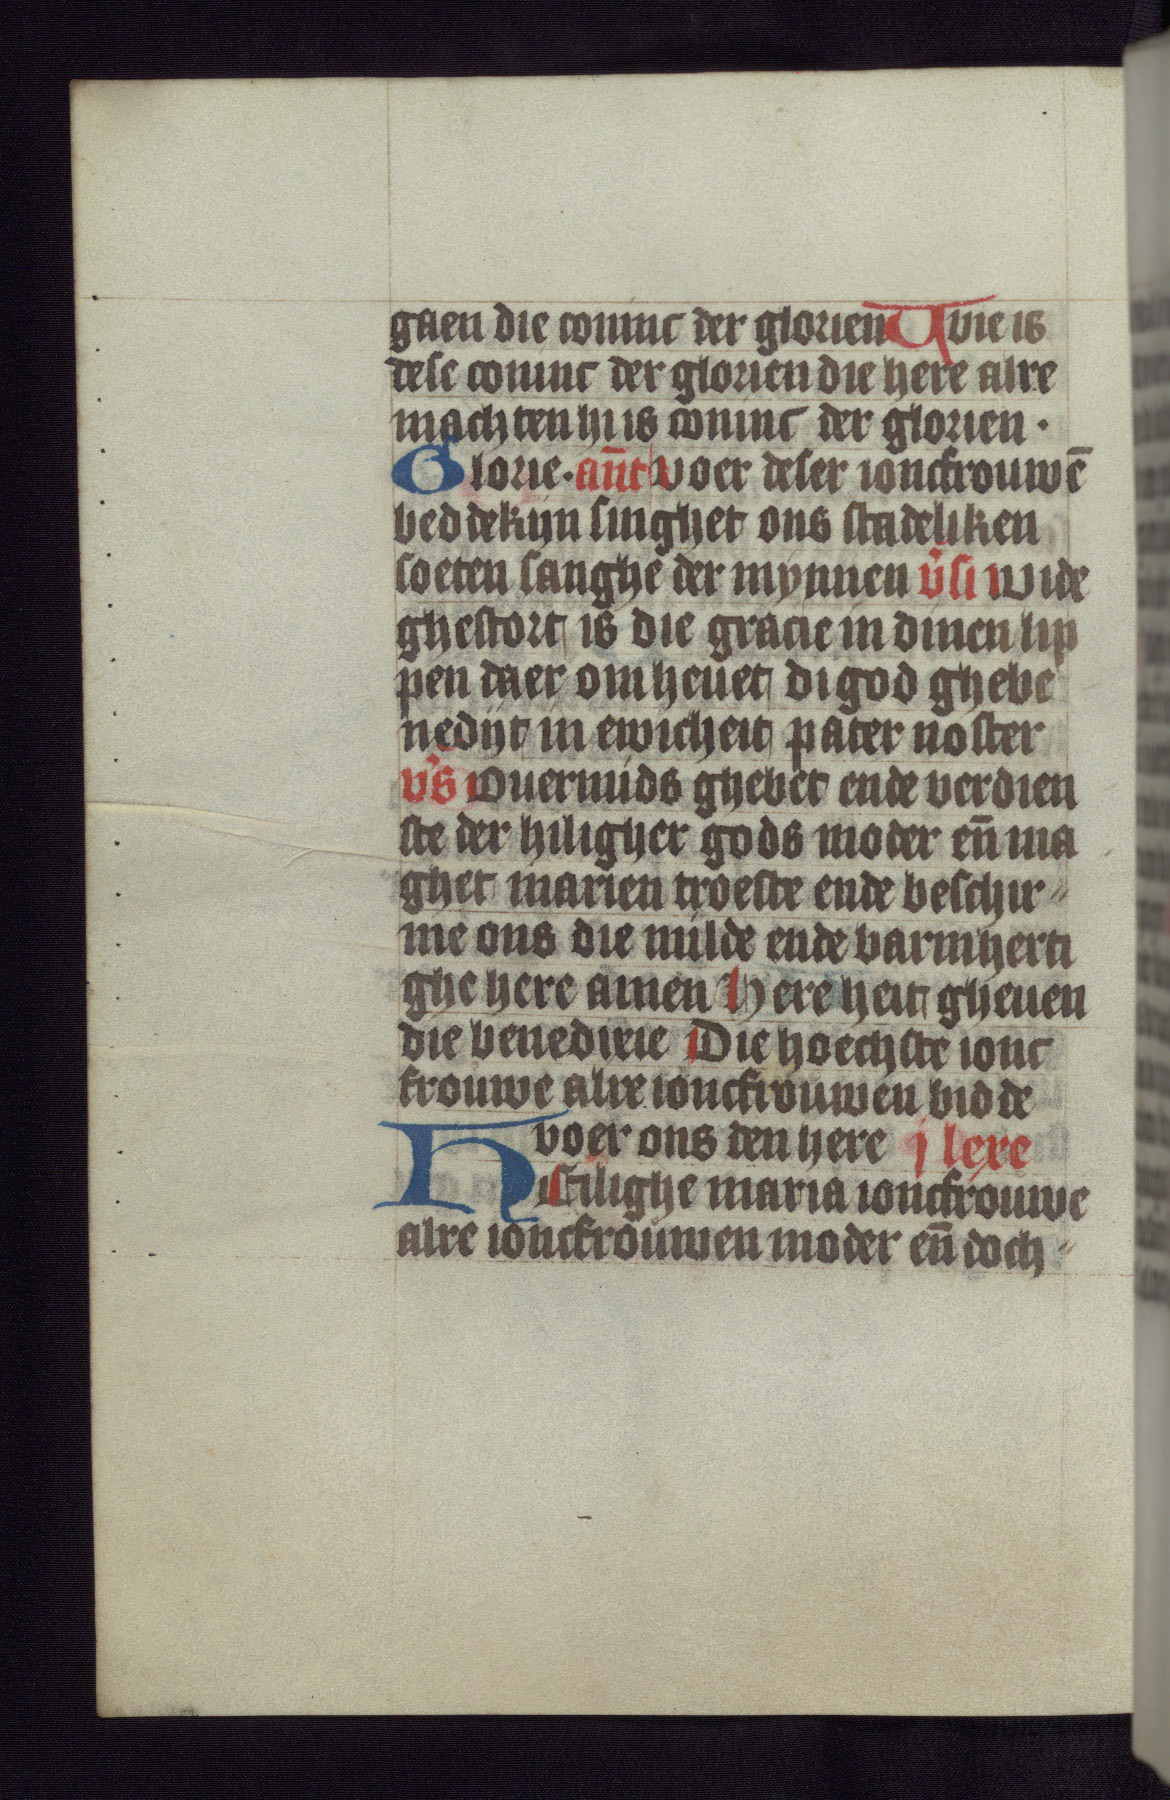 gaen die coninc der glorien Wie is
dese coninc der glorien die here alre
machten hi is coninc der glorien ·
Glorie · an̅t voer deser ioncfrouwe̅
beddekijn singhet ons stadeliken
soeten sanghe der mynnen v̾si wide
ghestort is die gracie in dinen lip
pen daer om heuet di god ghebe
nedijt in ewicheit pater noster
v̾s Ouermids ghebet ende verdien
ste der hiligher gods moder en̅ ma
ghet marien troeste ende beschir-
me ons die milde ende barmherti
ghe here amen Here heit gheuen
die benedixie Die hoechste ionc
frouwe alre ioncfrouwen bidde
voer ons den here j lexe
Hilighe maria ioncfrouwe
alre ioncfrouwen moder en̅ doch-